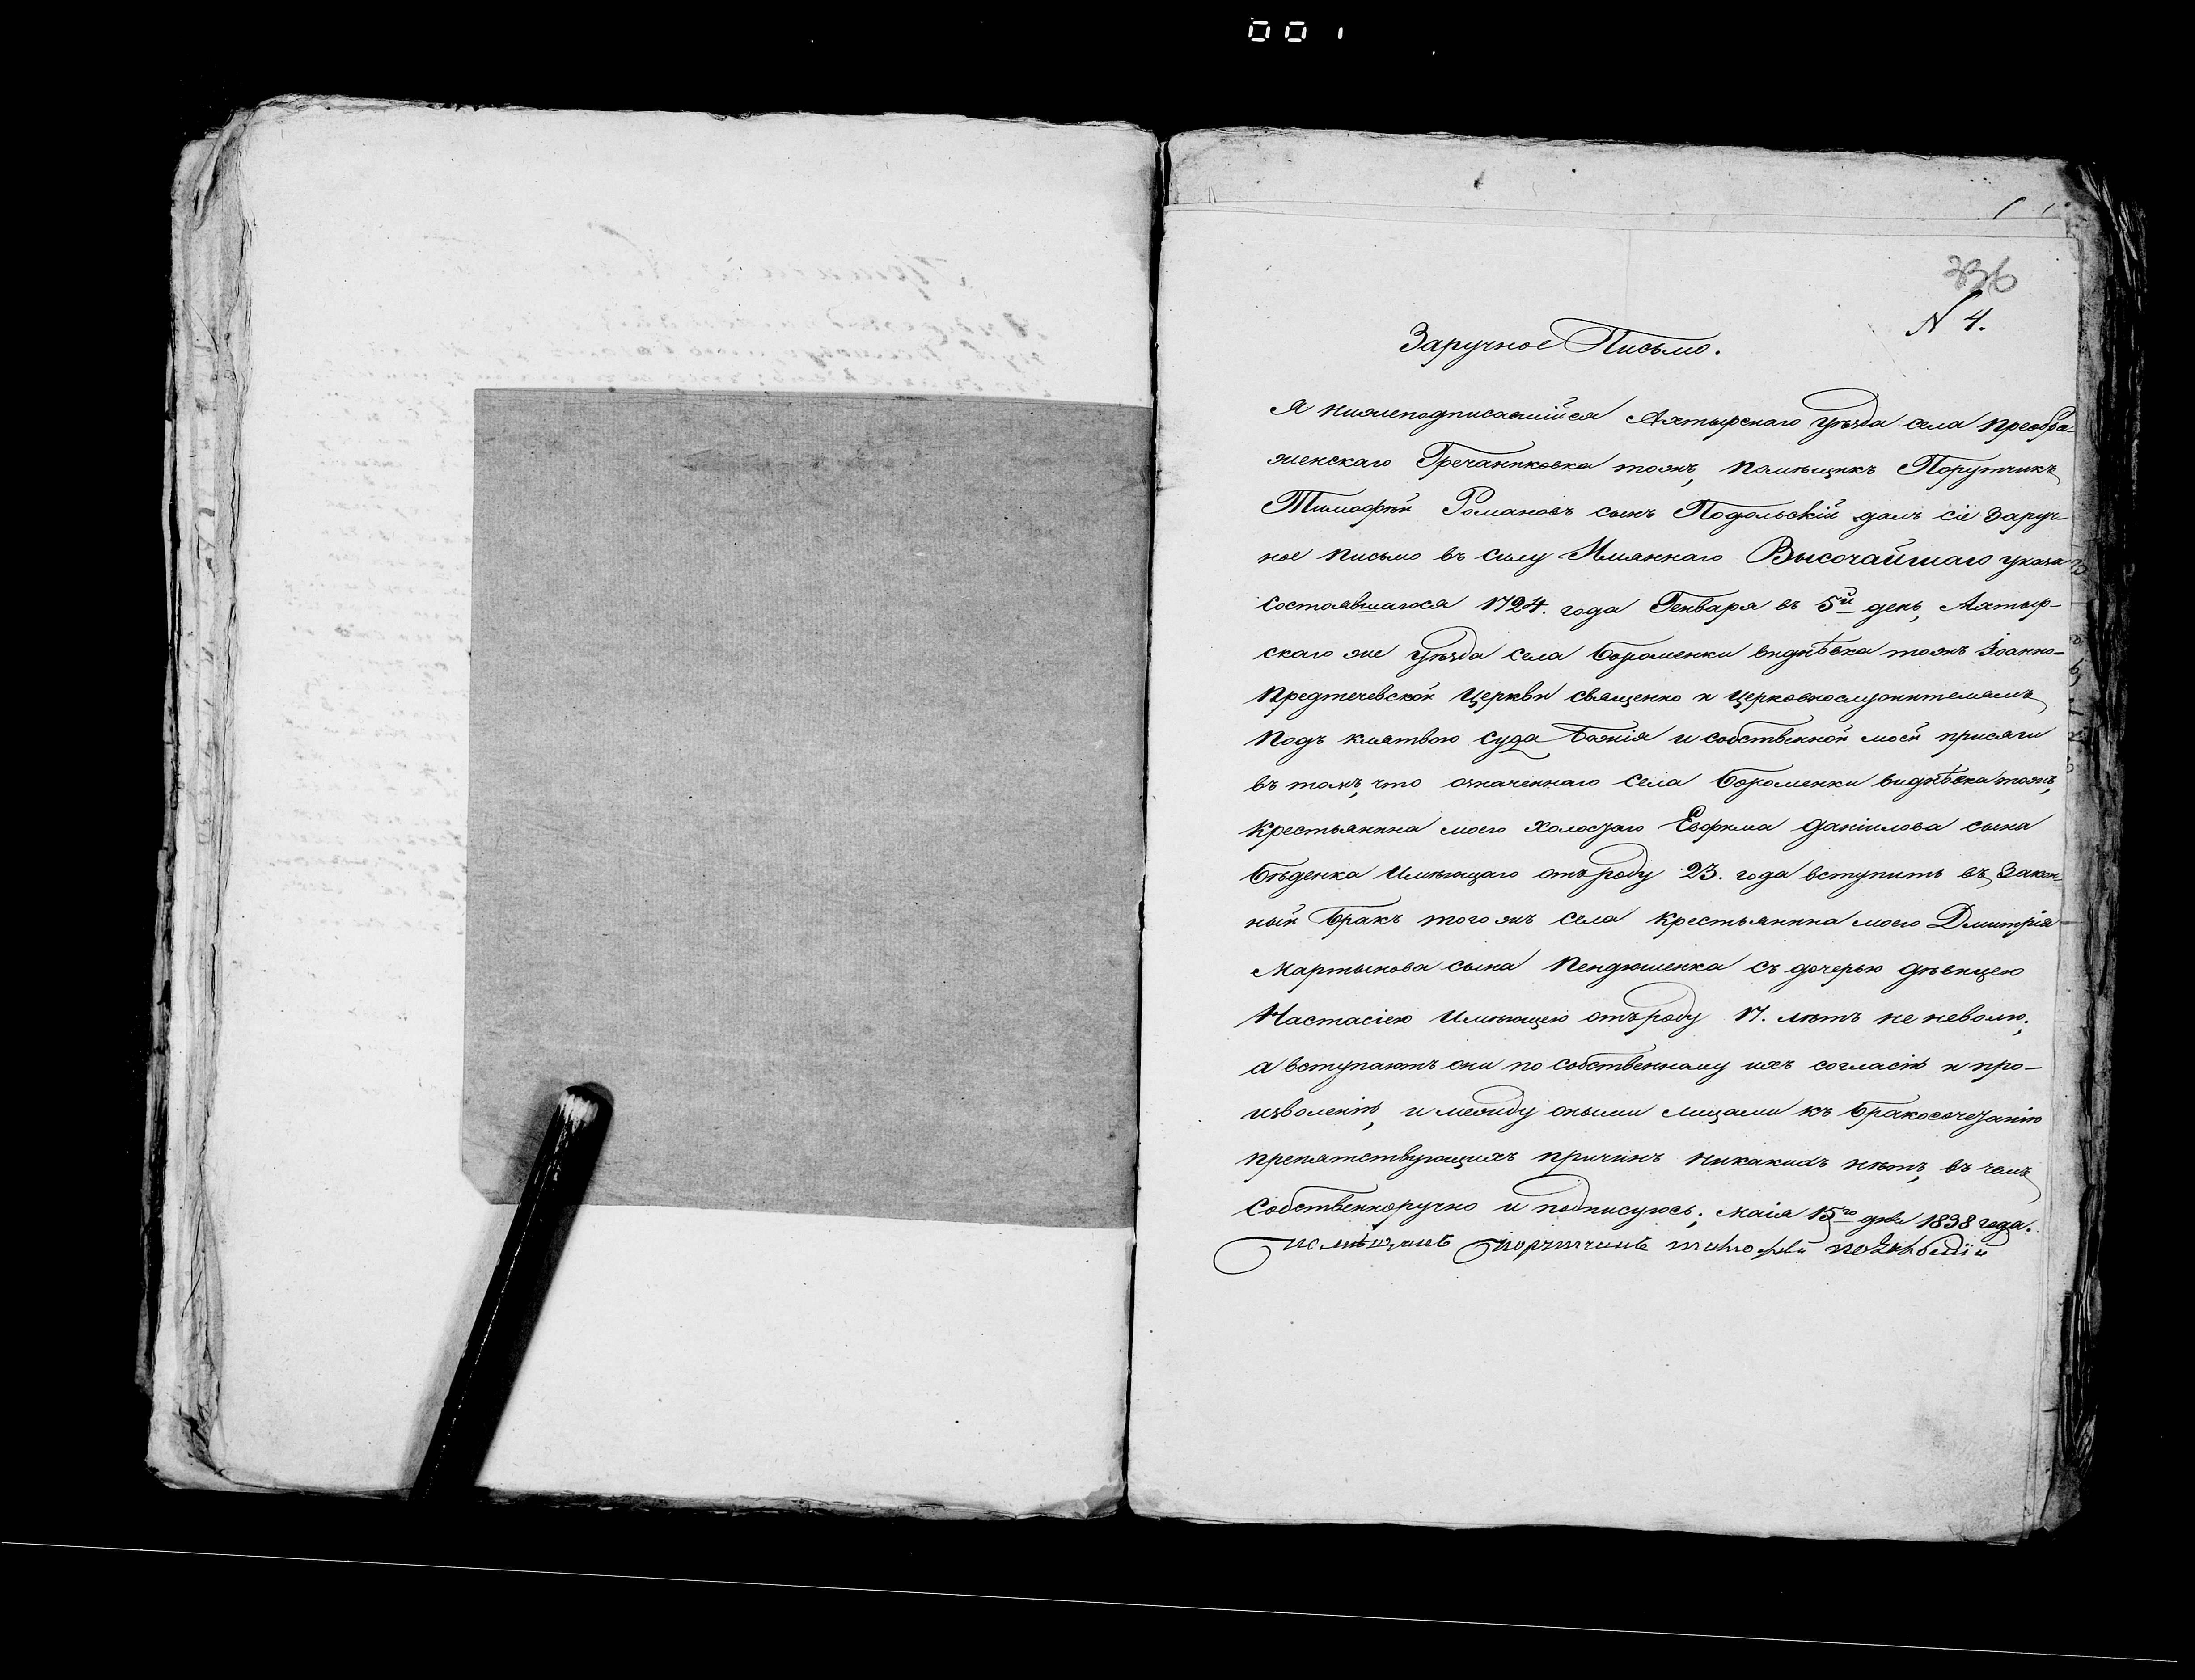 001
336
N 4.
Заручное Письмо.
Я нижеподписавшійся Ахтырскаго уѣзда села Преобра-
женскаго Гречаниковка тожъ, Помѣщикъ Порутчикъ
Тимофѣй Романовъ сынъ Подольскій далъ сіе Заруч-
ное Письмо въ Силу Имяннаго Высочайшаго указа
состоявшагося 1724. года Генваря въ 5й день, Ахтыр-
скаго же уѣзда села Бороменки тожъ Іоанно-
Предтечевской Церкви священно и Церковнослужителямъ
Подъ клятвою Суда Божія и собственной моей присяги
въ томъ, что означеннаго Села Бороменки тожъ,
Крестьянина моего холостаго Евфима Даніилова сына
Бѣденка Имѣющаго отъ роду 23. года вступить въ Закон-
ный Бракъ того жъ Села Крестьянина моего Дмитрія
Мартынова сына Пендюшенка съ дочерью дѣвицею
Настасіею Имѣющею отъ роду 17. лѣтъ не неволю;
а вступаютъ они по Собственному ихъ согласію и про-
изволенію, и между оными лицами къ Бракосочетанію
препятствующихъ причинъ никакихъ нѣтъ, въ чемъ
Собственноручно и подписуюсь; Маія 15го дня 1838 года.
Помѣщикъ Порутчикъ тимофѣй подольскій